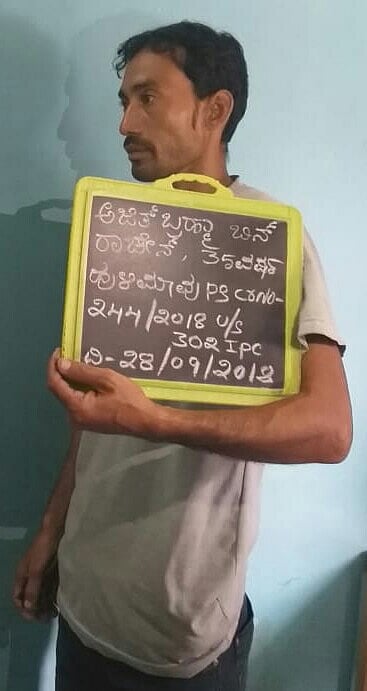 ಅಜಿತ್ ಬ್ರಹ್ಮಾ ಬಿನ್
ರಾಜೇನ್, 35ವರ್ಷ
ಹುಳಿಮಾವು PS CrNo-
244/2018 U/S
302 IPC
ದಿ-28/09/2018